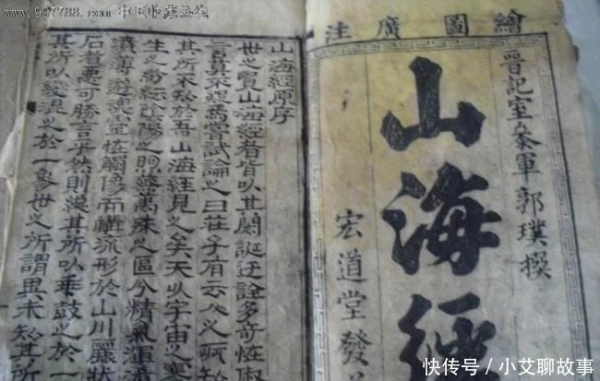 www.997788.com 中国收藏热线
繪圖廣注
晉記室參軍郭璞撰
山海經
宏道堂發
山海經原序
世之覽山海經者皆以其閎誕迂誇多奇怪俶
言莫不疑焉嘗試論之曰莊子有云人之所知
其所不知吾於山海經見之矣夫以宇宙之寥
生之紛紜陰陽之煦蒸萬殊之區分精氣渾淆
瀆薄遊魂靈怪觸像而構流形於山川麗狀
石者惡可勝言乎然則總其所以乖鼓之於一
其所以變混之於一象世之所謂異未知其所
快传号/小艾聊故事